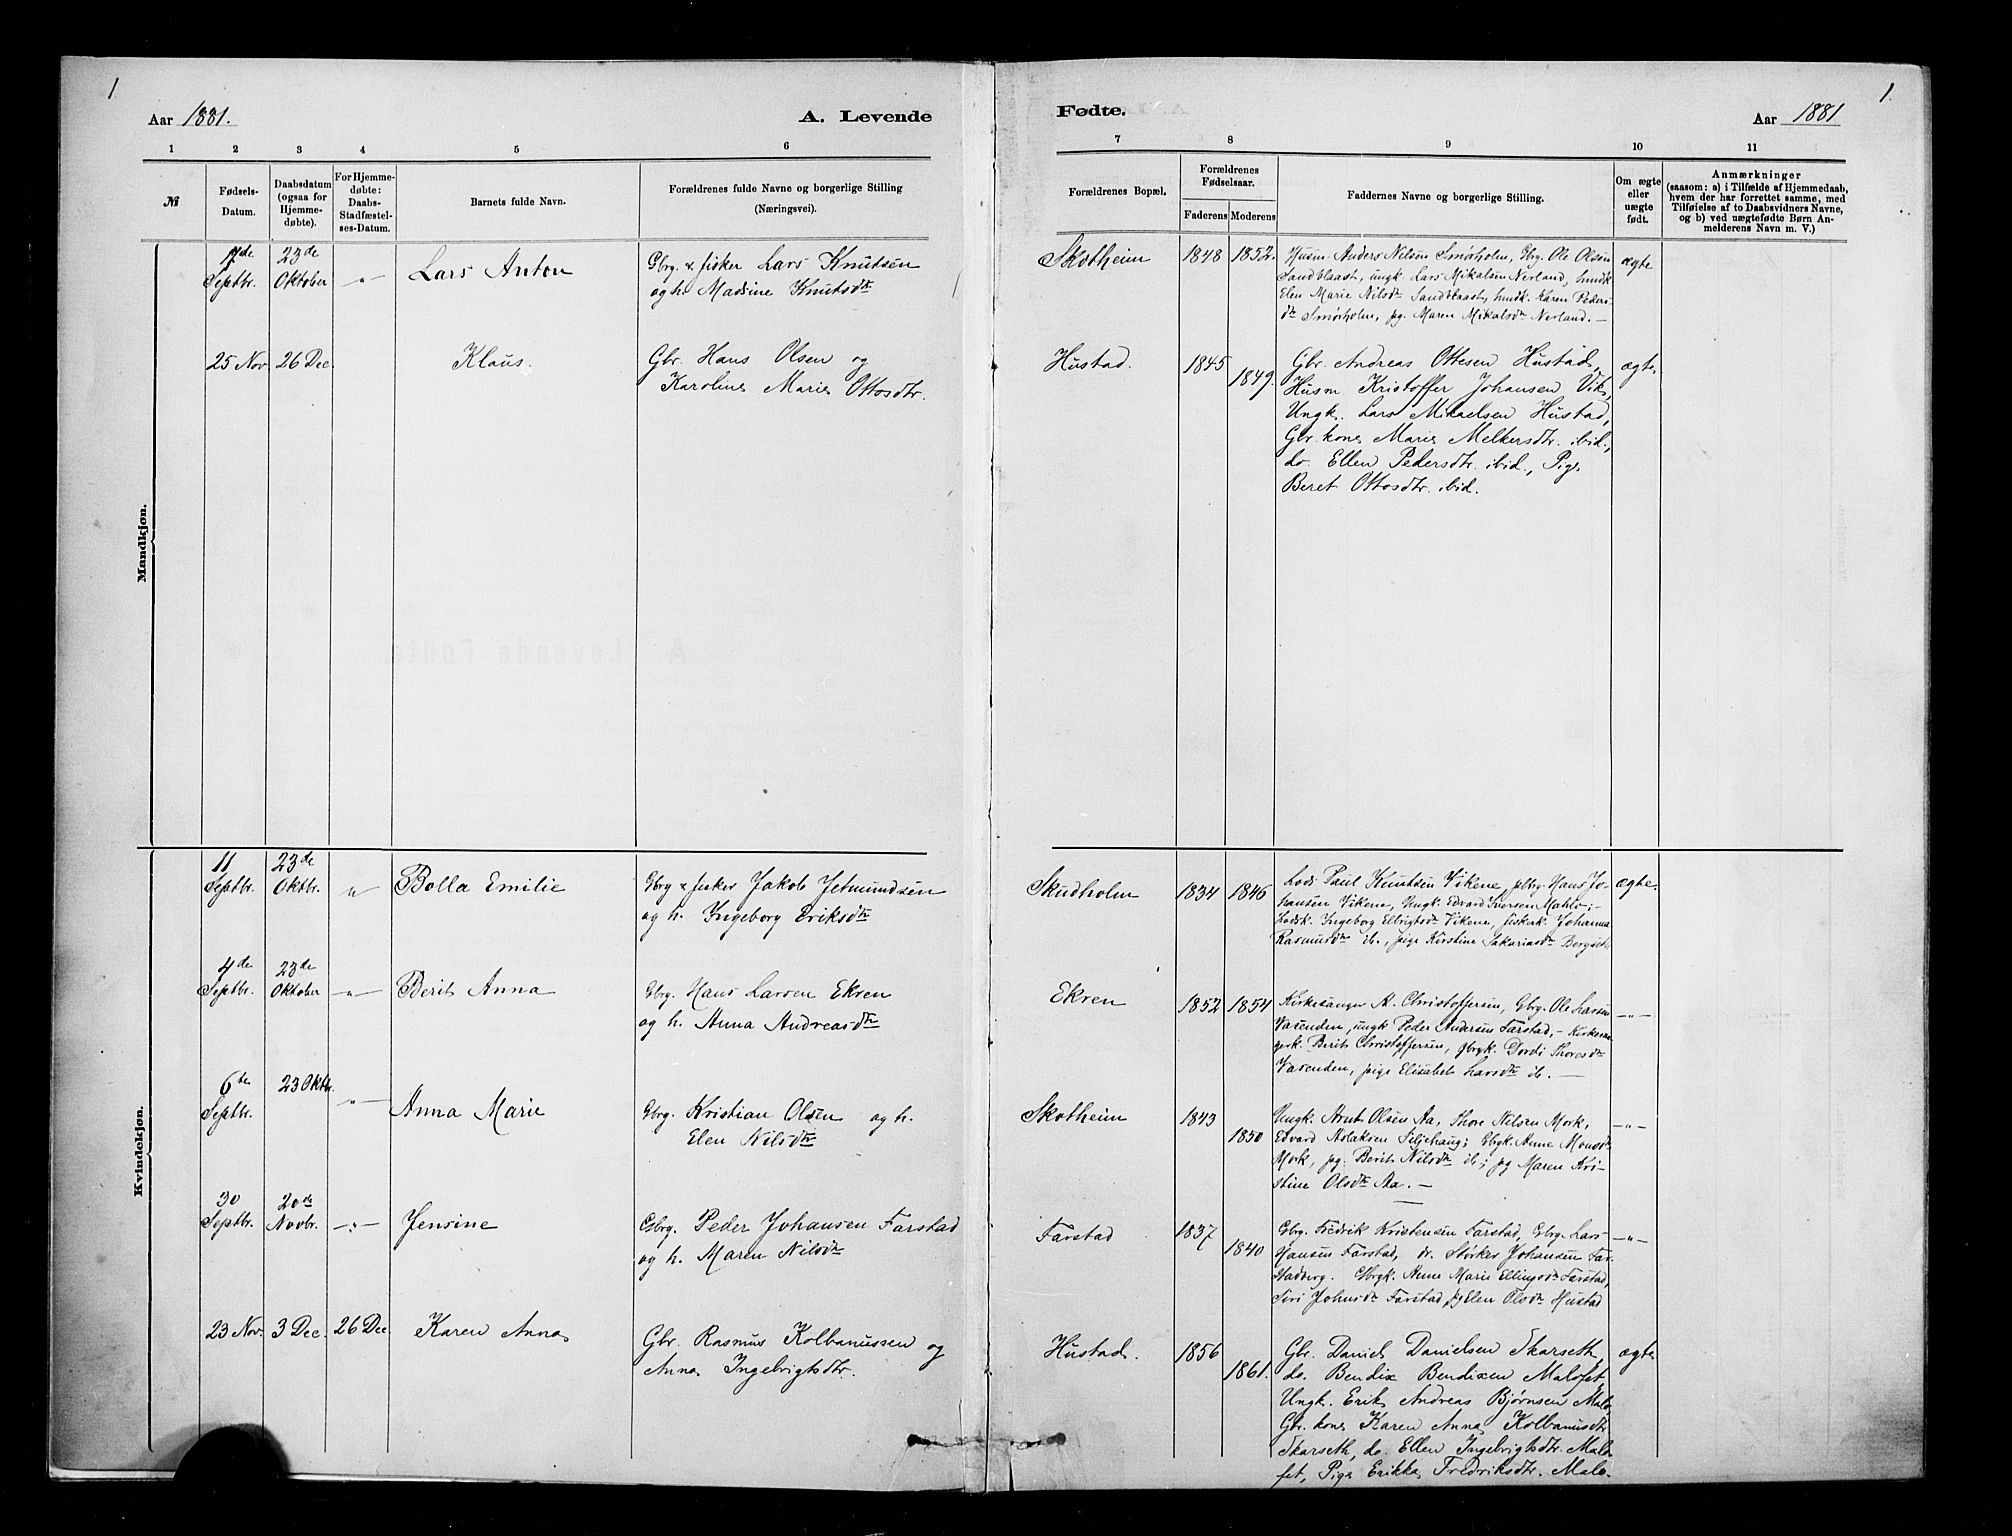 1
Aar 1881.
A. Levende
1 2 3 4 5 6
№
Fødsels-
Datum.
Daabsdatum
(ogsaa for
Hjemme-
døbte).
For Hjemme-
døbte:
Daabs-
Stadfæstel-
ses-Datum.
Barnets fulde Navn.
Forældrenes fulde Navne og borgerlige Stilling
(Næringsvei).
Mandkjøn.
7de
Septbr.
23de
Oktober
"
Lars Anton
Gbrg. & fisker Lars Knutsen
og h. Madsine Knutsdtr
25 Nov.
26 Dec.
Klaus.
Gbr. Hans Olsen og
Karoline Marie Ottosdtr.
Kvindekjøn.
11
Septbr.
23de
Oktbr.
"
Bolla Emilie
Gbrg & fisker Jakob Jetmundsen
og h. Ingeborg Eriksdtr
4de
Septbr.
23de
Oktober
"
Berit Anna
Gbrg. Hans Larsen Ekren
og h. Anna Andreasdtr
6te
Septbr.
23 Oktbr.
"
Anna Marie
Gbrg. Kristian Olsen og h.
Elen Nilsdtr
30
Septbr.
20de
Novbr.
"
Jensine
Gbrg. Peder Johansen Farstad
og h. Maren Nilsdtr
23 Nov.
3 Dec.
26 Dec.
Karen Anna
Gbr. Rasmus Kolbanussen og
Anna Ingebrigtsdtr.
1.
Fødte.
Aar 1881
7 8 9 10 11
Forældrenes Bopæl.
Forældrenes
Fødselsaar.
Faderens
Moderens
Faddernes Navne og borgerlige Stilling.
Om ægte
eller
uægte
født.
Anmærkninger
(saasom: a) i Tilfælde af Hjemmedaab,
hvem der har forrettet samme, med
Tilføielse af to Daabsvidners Navne,
og b) ved uægtefødte Børn An-
melderens Navn m. V.)
Skotheim
1848
1852.
Husm. Anders Nilsen Smørholm, Gbrg. Ole Olsen
Sandblaast, ungk. Lars Mikalsen Nerland, hmdk.
Elen Marie Nilsdtr Sandblaast, hmdk. Karen Peders-
dtr Smørholm, pg. Maren Mikalsdtr Nerland. —
ægte
Hustad.
1845
1849.
Gbr. Andreas Ottesen Hustad,
Husm. Kristoffer Johansen Vik,
Ungk. Lars Mikaelsen Hustad,
Gbr. kone Marie Melkersdtr. ibid.,
do. Ellen Pedersdtr. ibid., Pige
Beret Ottosdtr. ibid.
ægte
Skudholm
1834
1846
Lods Paul Knutsen Vikene, Hans Jo-
hansen Vikene, Ungk. Edvard Iversen
Lodsk. Ingeborg Vikene, fiskerk. Johanna
Rasmusdtr ib., pige Kirstine Sakariasdtr
ægte.
Ekren
1852
1854
Kirkesanger A. Christoffersen, Gbrg. Ole Larsen
Vasenden, ungk Peder Andersen Farstad, — Kirkesan-
gerk. Berit Christoffersen, Gbrgk. Dordi Thoresdtr
Vasenden, pige Elisabeth Larsdtr ib. —
— " —
Skotheim
1843
1850
Ungk. Arnt Olsen Aa, Thore Nilsen Mork,
Edvard Aslaksen Siljehaug; Gbrgk. Anne
Mork, pg. Berit Nilsdtr ib; pg Maren Kri-
stine Olsdtr Aa. —
— " —
Farstad
1837
1840
Gbrg. Fredrik Kristensen Farstad, Gbrg. Lars
Hansen Farstad, dr. Størker Johansen Far-
stadberg. Gbrgk. Anne Marie Ellingsdtr Farstad,
Siri Johnsdtr Farstad, pg Elen Olsdtr Hustad
— " —
Hustad.
1856
1861.
Gbr. Daniel Danielsen Skarseth,
do. Bendix Bendixen Malefet,
Ungk. Erik Andreas Bjørnsen Male.
Gbr. kone Karen Anna Kolbanusdtr
Skarseth, do. Ellen Ingebrigtsdtr. Male-
fet, Pige Erikka Fredriksdtr. Male.
ægte